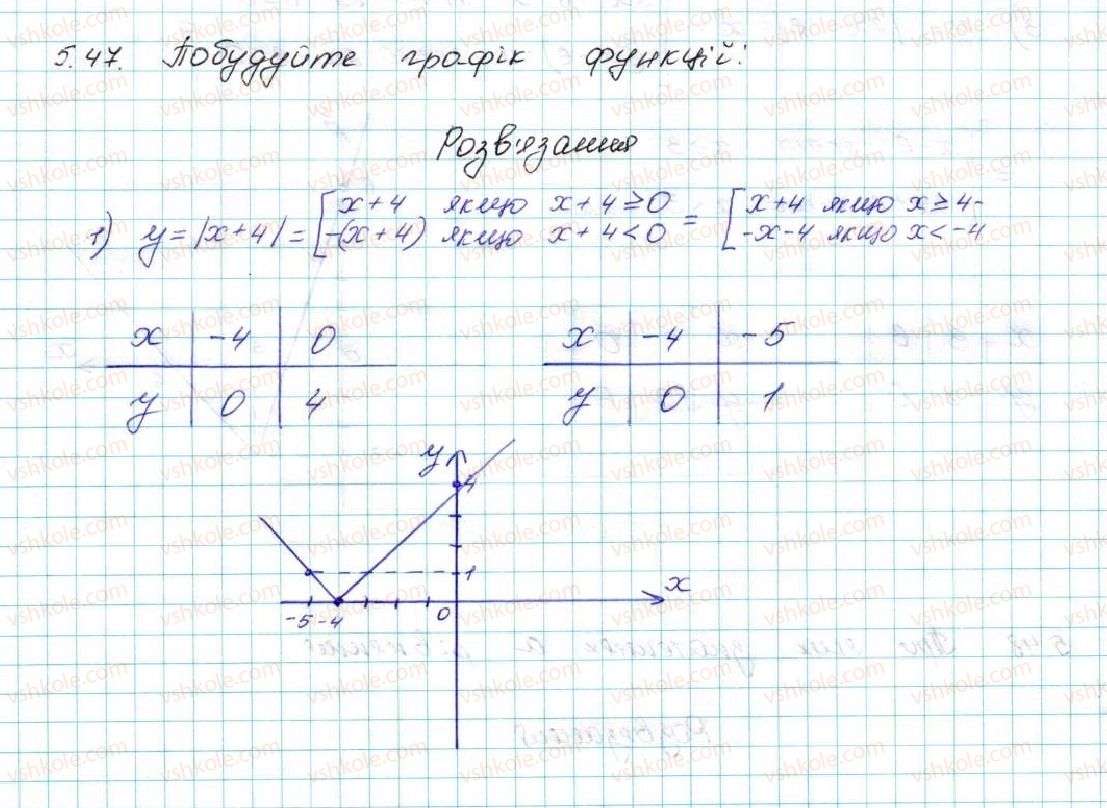 5.47. Побудуйте графік функцій:
Розв'язання
1) y = |x+4| = [ x+4 якщо x+4 ≥ 0 = [ x+4 якщо x ≥ 4-
-(x+4) якщо x+4 < 0 -x-4 якщо x < -4
x -4 0
y 0 4
x -4 -5
y 0 1
y
4
1
x
-5 -4 0
vshkole.com